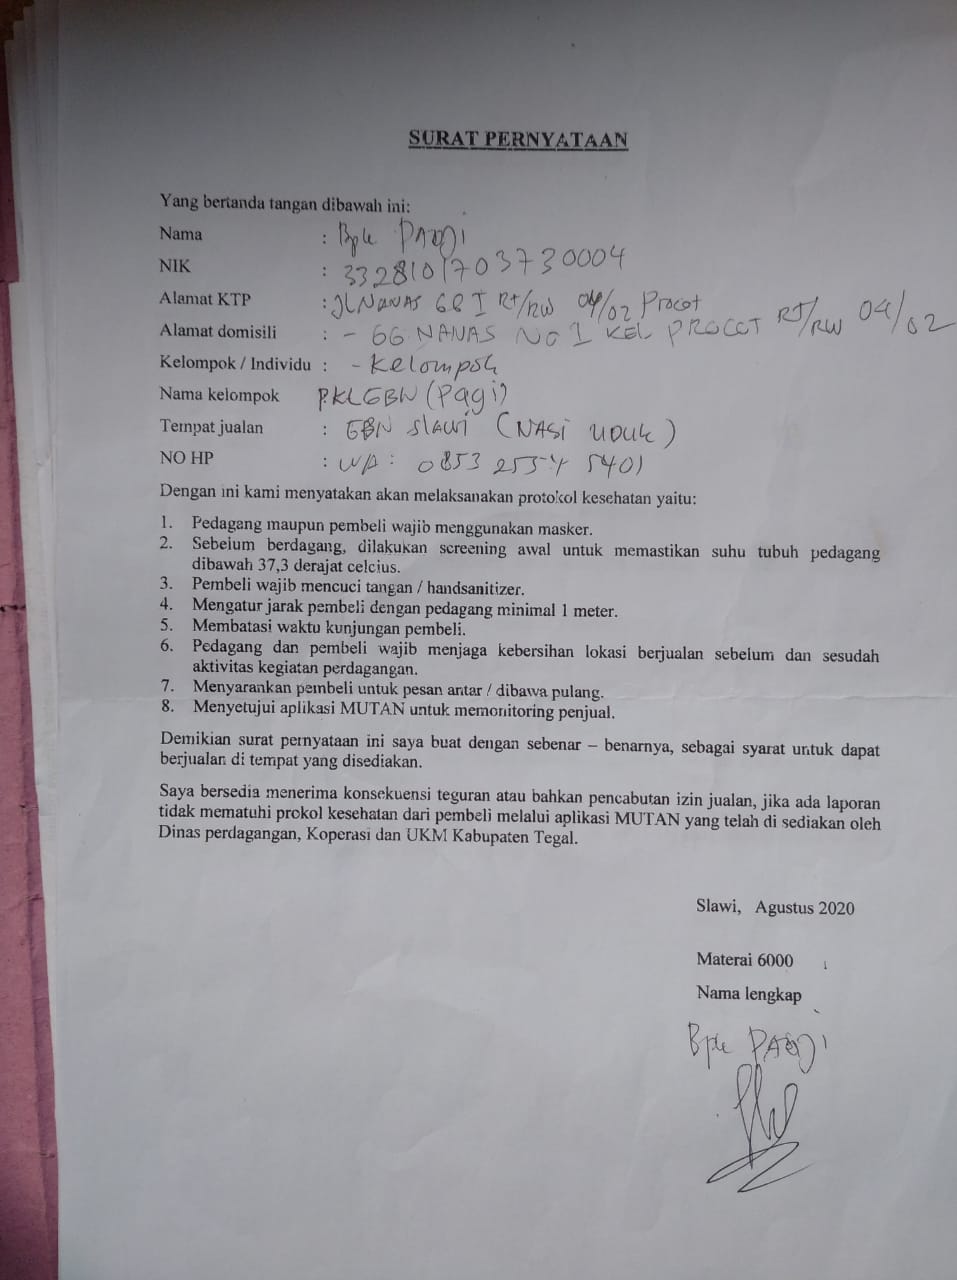 SURAT PERNYATAAN
Yang bertanda tangan dibawah ini:
Nama : Bpk
NIK : 3328101703730004
Alamat KTP : JL NANAS GG I RT/RW 04/02 Procot
Alamat domisili : - GG NANAS NO 1 KEL PROCOT RT/RW 04/02
Kelompok / Individu : - Kelompok
Nama kelompok PKLGBN (Pagi)
Tempat jualan : GBN Slawi (NASI UDUK)
NO HP : WA : 0853 2554 5401
Dengan ini kami menyatakan akan melaksanakan protokol kesehatan yaitu:
1. Pedagang maupun pembeli wajib menggunakan masker.
2. Sebelum berdagang, dilakukan screening awal untuk memastikan suhu tubuh pedagang
dibawah 37,3 derajat celcius.
3. Pembeli wajib mencuci tangan / handsanitizer.
4. Mengatur jarak pembeli dengan pedagang minimal 1 meter.
5. Membatasi waktu kunjungan pembeli.
6. Pedagang dan pembeli wajib menjaga kebersihan lokasi berjualan sebelum dan sesudah
aktivitas kegiatan perdagangan.
7. Menyarankan pembeli untuk pesan antar / dibawa pulang.
8. Menyetujui aplikasi MUTAN untuk memonitoring penjual.
Demikian surat pernyataan ini saya buat dengan sebenar – benarnya, sebagai syarat untuk dapat
berjualan di tempat yang disediakan.
Saya bersedia menerima konsekuensi teguran atau bahkan pencabutan izin jualan, jika ada laporan
tidak mematuhi prokol kesehatan dari pembeli melalui aplikasi MUTAN yang telah di sediakan oleh
Dinas perdagangan, Koperasi dan UKM Kabupaten Tegal.
Slawi, Agustus 2020
Materai 6000
Nama lengkap
Bpk